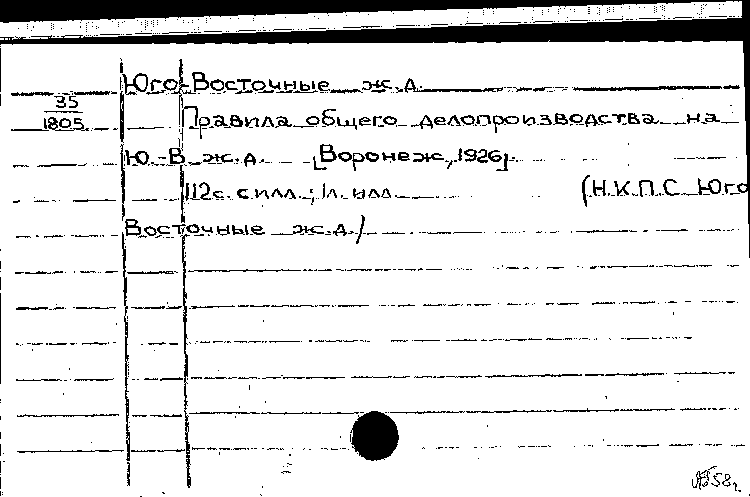 Юго-Восточные ж.д.
35
1805
Правила общего делопроизводства на
Ю.-В. ж.д. [Воронеж, 1926].
112с. с илл.; 1л. илл. (Н.К.П.С. Юго
Восточные ж.д.)
58г.